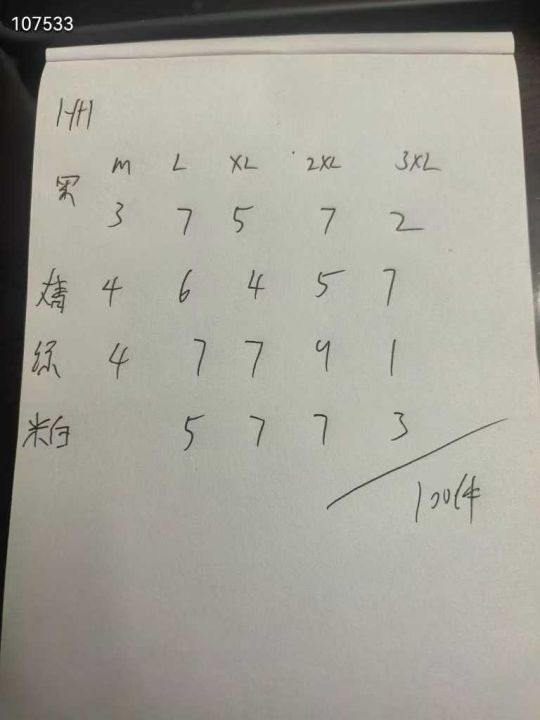 107533
M L XL 2XL 3XL
黑
3 7 5 7 2
丈青 4 6 4 5 7
绿 4 7 7 9 1
米白 5 7 7 3
100件